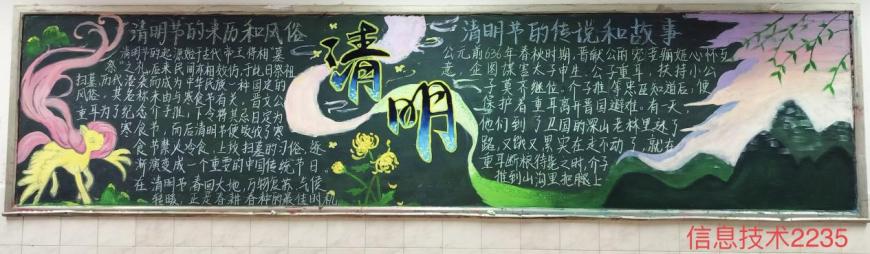 清明节的来历和风俗
清明节的起源始于古代帝王将相"墓
祭"之礼,后来民间亦相效仿,于此日祭祖
扫墓,历代沿袭而成为中华民族一种固定的
风俗,其名称来由与寒食节有关,晋文公
重耳为了纪念介子推,下令将其忌日定为
寒食节,而后清明节便吸收了寒
食节禁人冷食,上坟扫墓的习俗,逐
渐演变成一个重要的中国传统节日。
在清明节,春回大地,万物复苏,气候
转暖,正是春耕春种的最佳时机
清明
清明节的传说和故事
公元前636年春秋时期,晋献公的宠妾骊姬心怀歹
意,企图谋害太子申生,公子重耳,扶持小公
子奚齐继位,介子推等忠臣知道后,便
保护着重耳离开晋国避难,有一天,
他们到了卫国的深山老林里迷了
路,又饿又累实在走不动了,就在
重耳断粮待毙之时,介子
推到山沟里把腿上
信息技术2235